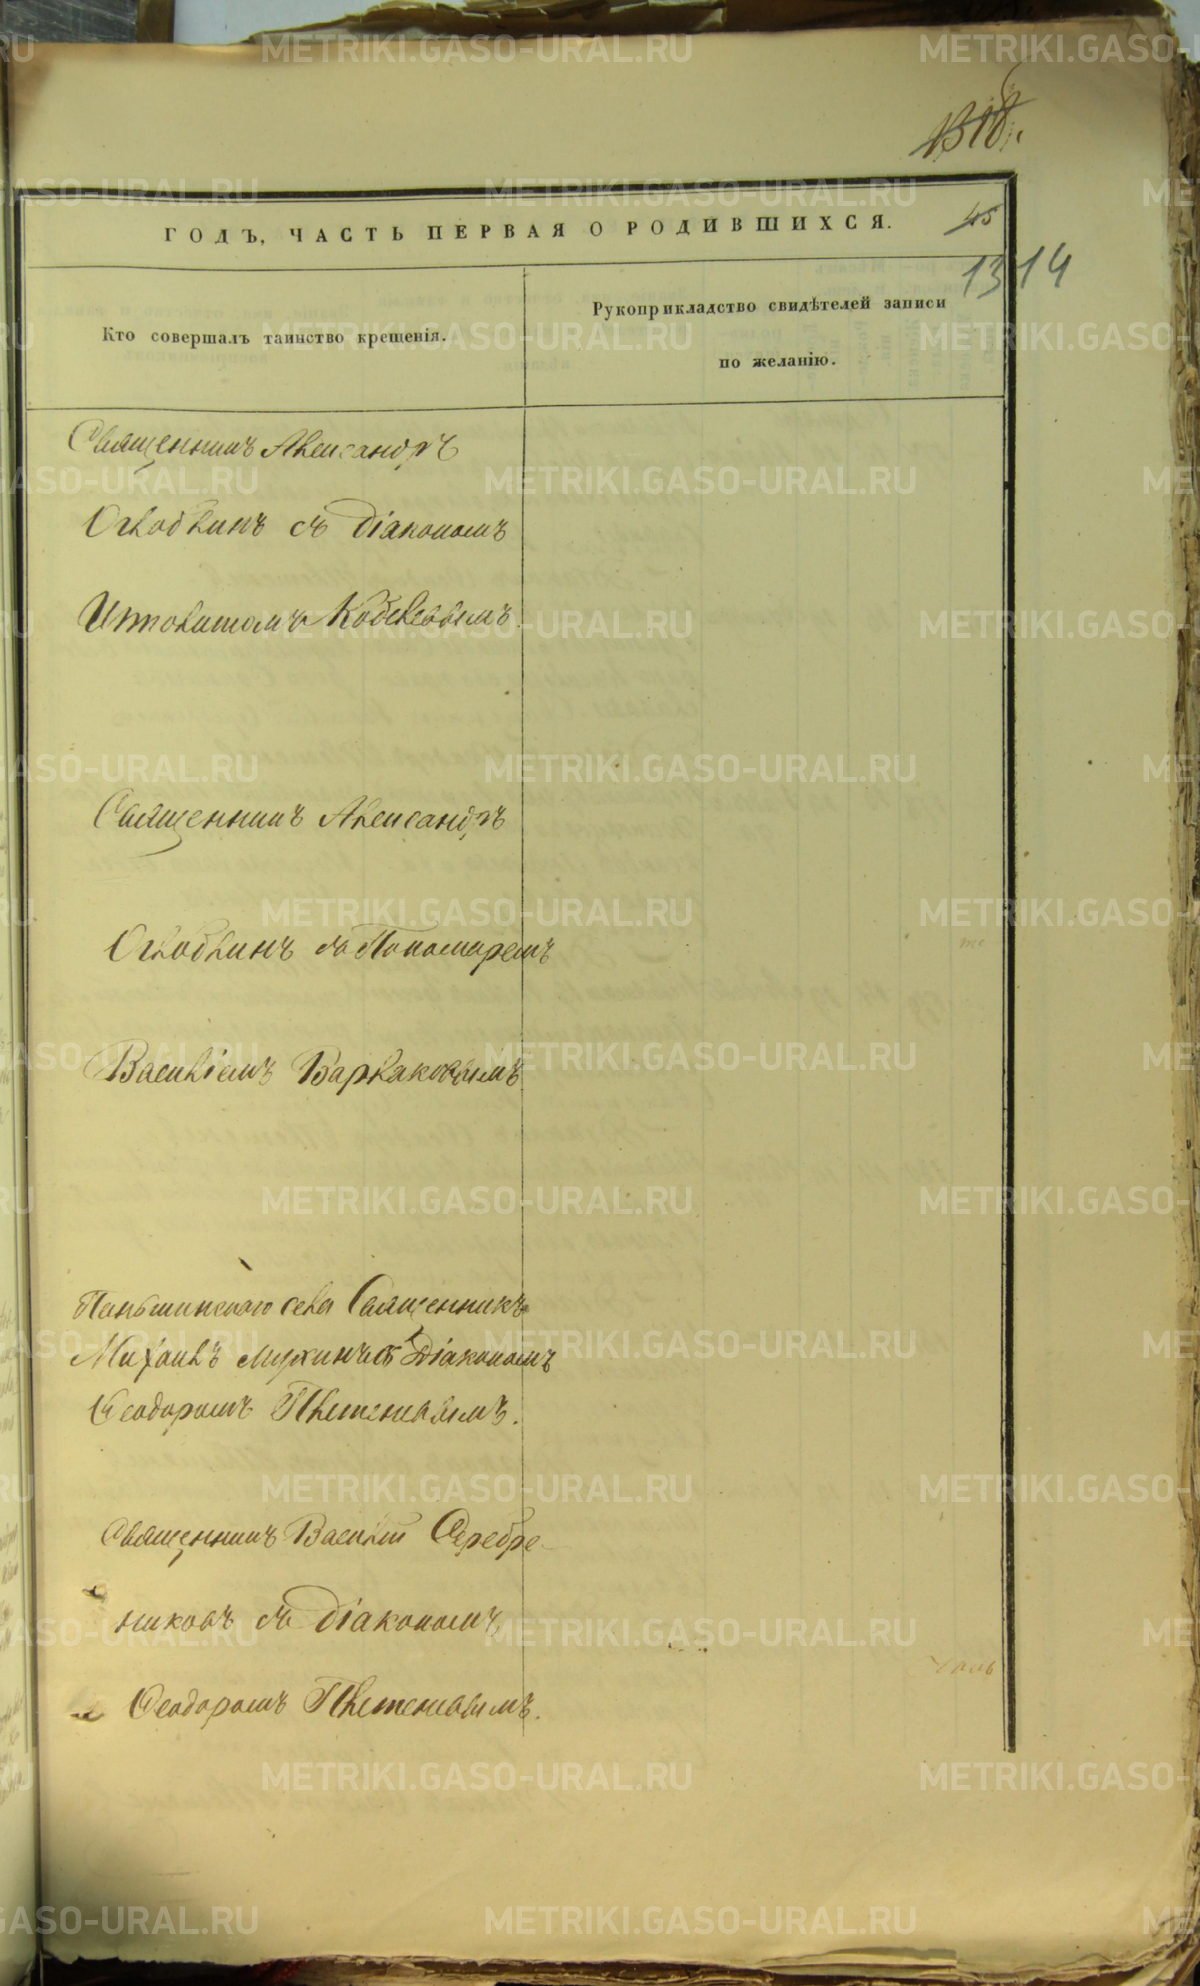 1318.
ГОДЪ, ЧАСТЬ ПЕРВАЯ О РОДИВШИХСЯ.
45
1314
Кто совершалъ таинство крещенія.
Рукоприкладство свидѣтелей записи
по желанію.
Священникъ Александръ
съ Діакономъ
Священникъ Александръ
съ Пономаремъ
Василіемъ Варлаковымъ
Паньшинскаго села Священникъ
Михаилъ съ Діакономъ
Ѳеодоромъ Плетеневымъ.
Священникъ Василій Серебре-
никовъ съ Діакономъ
Ѳеодоромъ Плетеневымъ.
METRIKI.GASO-URAL.RU